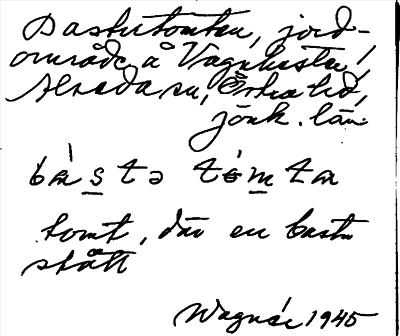 Bastutomten, jord-
område å Vagnhester,
Alseda sn, Östra hd,
jönk. län
bàstə tómta
tomt, där en bastu
stått
Wagnér 1945